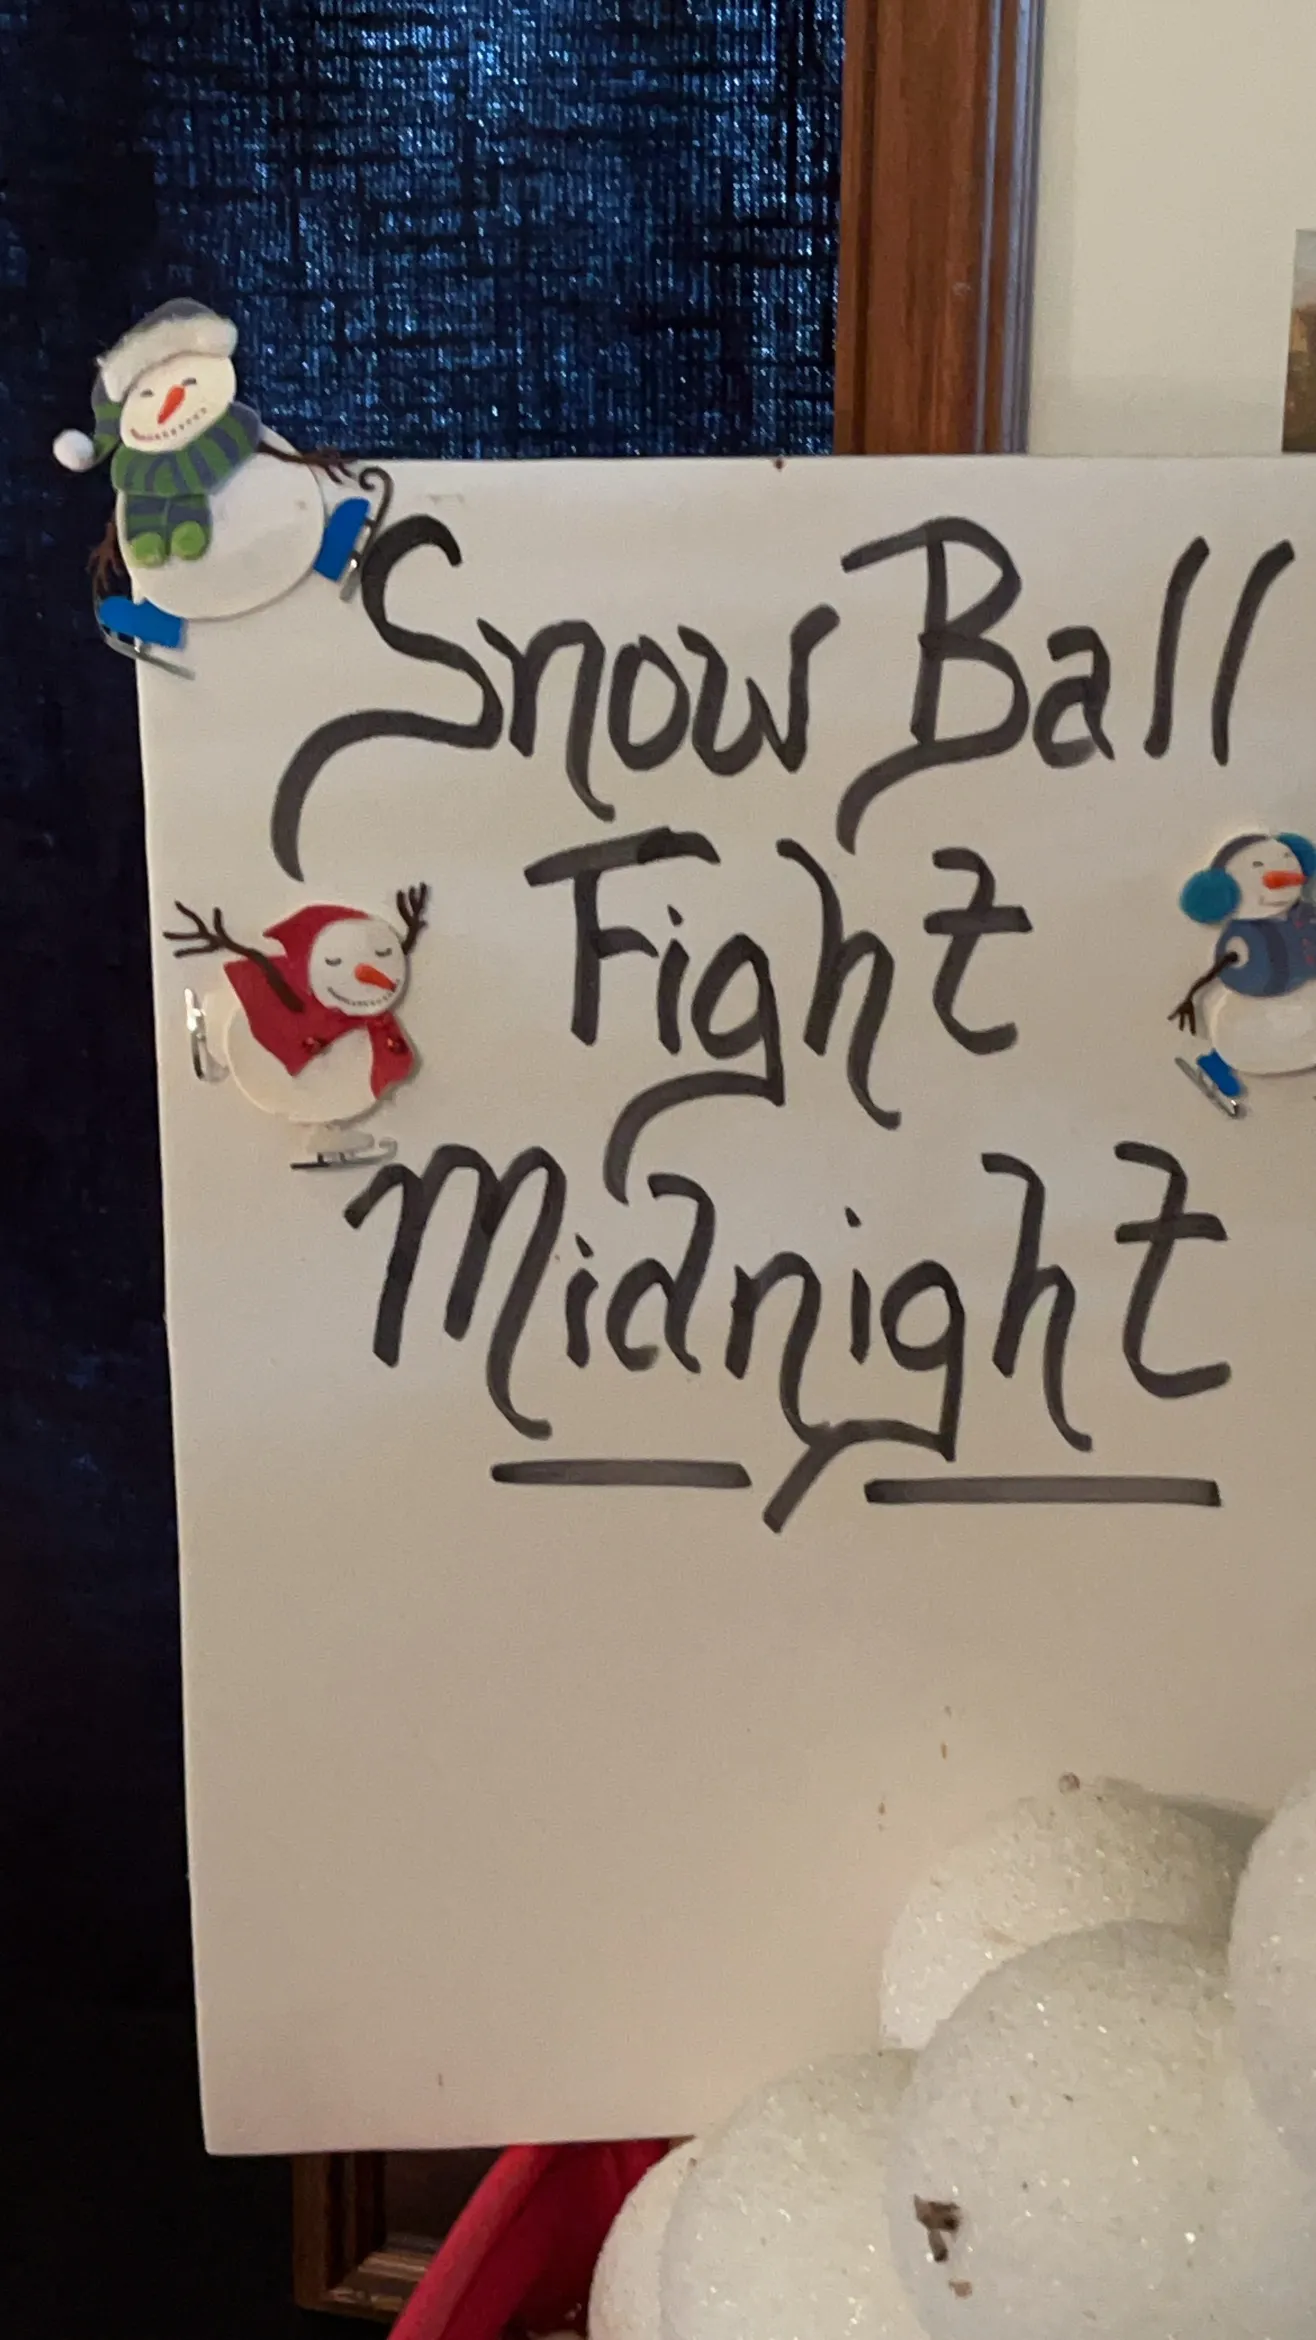 Snow Ball
Fight
Midnight